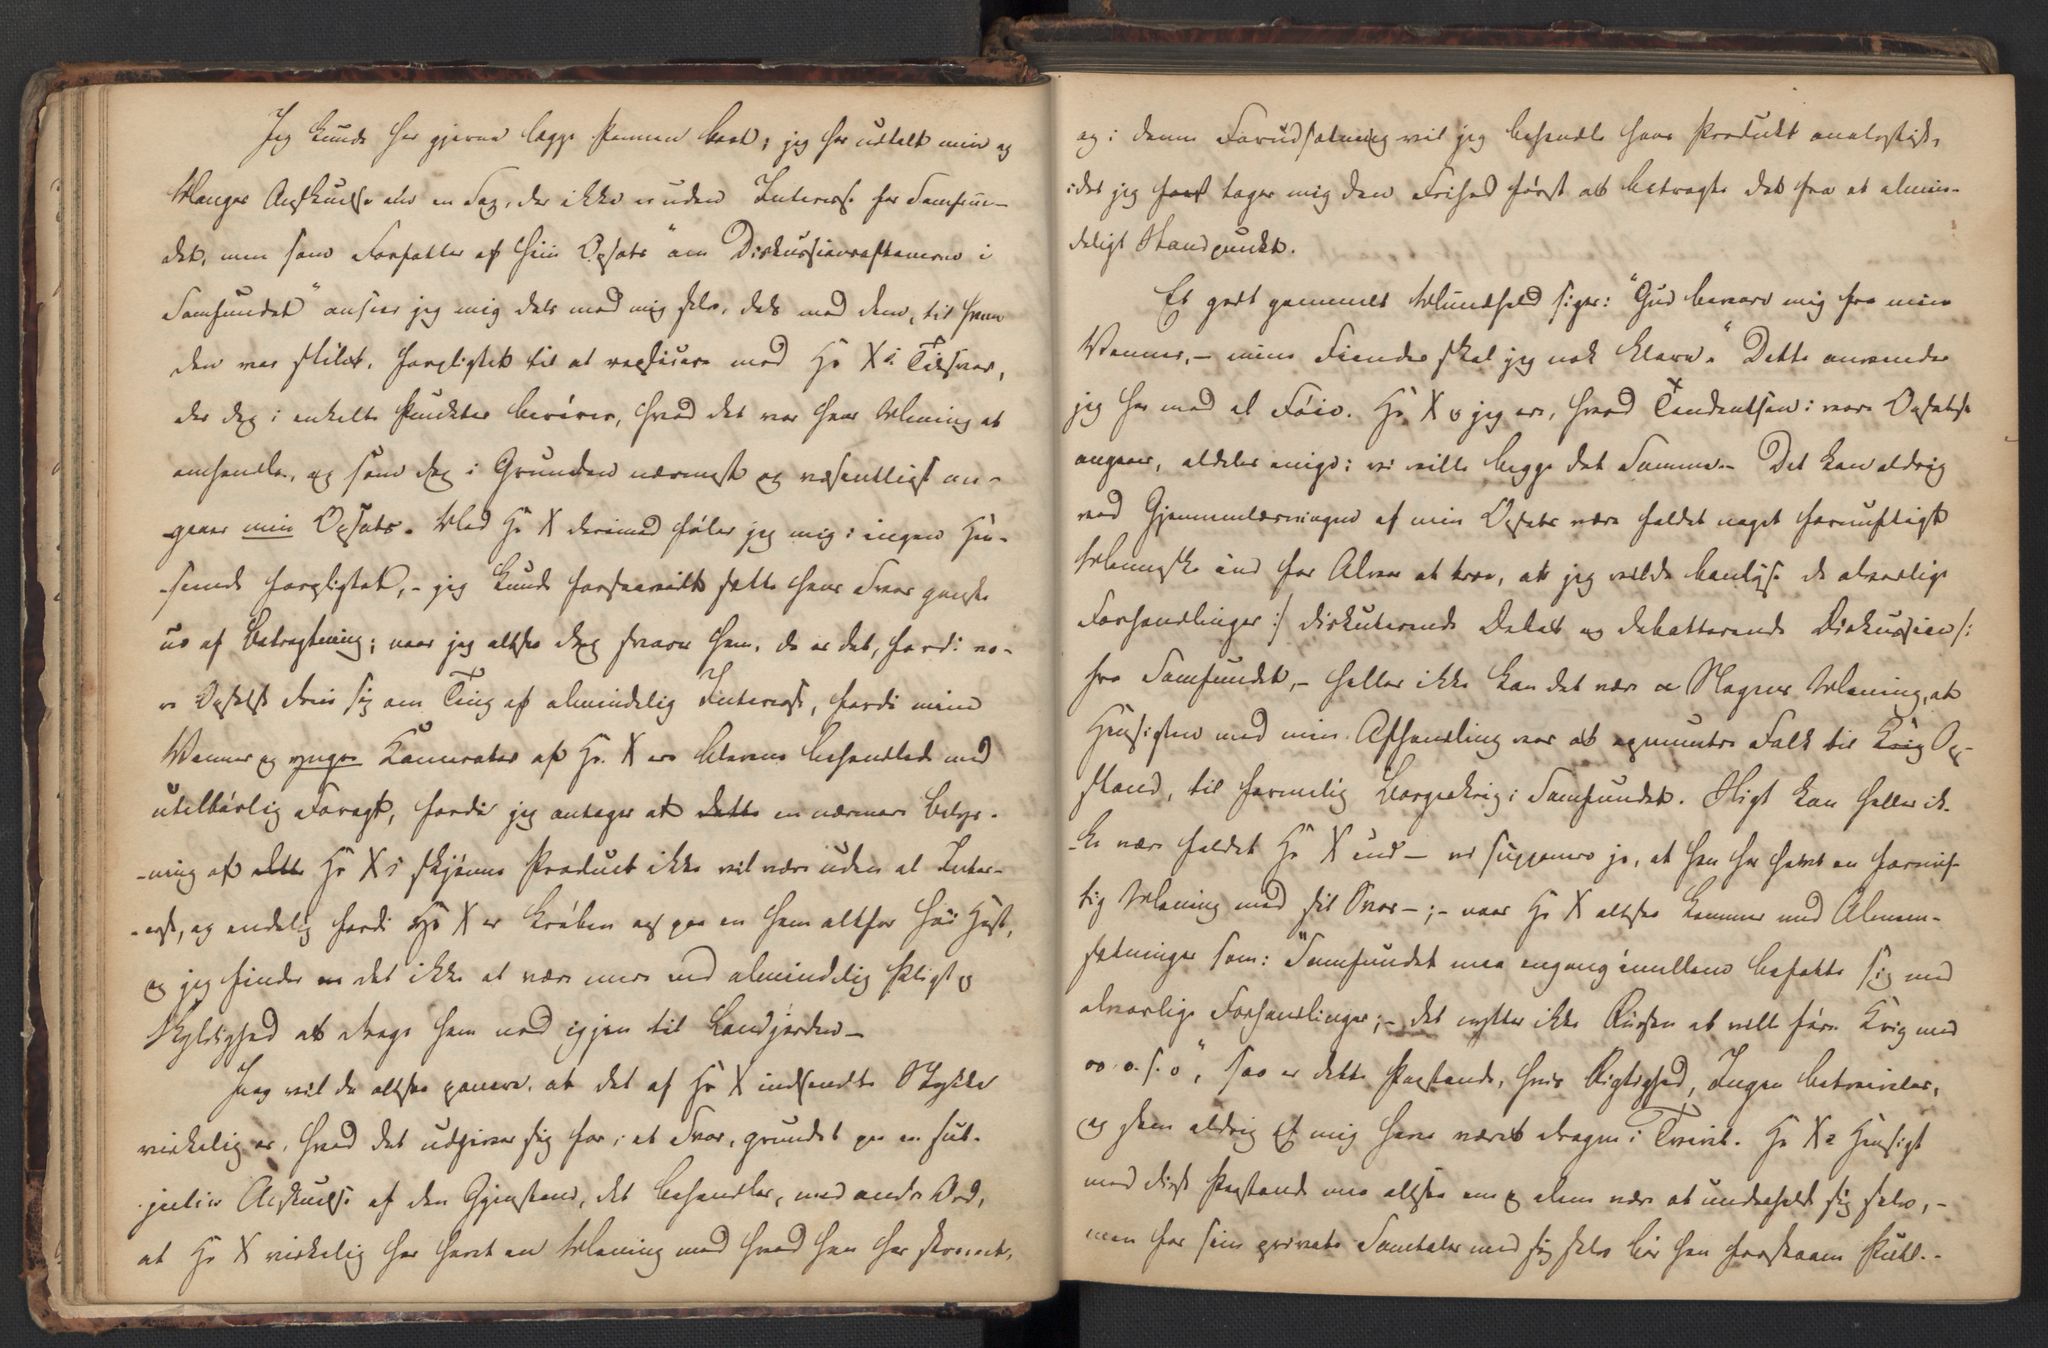 Jeg kunde her gjerne lægge Pennen bort; jeg har udtalt min og
Manges Anskuelse om en Sag, der ikke er uden Interesse for Samfun-
det, men som Forfatter af hiin Opsats "om Diskussionsaftenerne i
Samfundet" anseer jeg mig dels mod mig selv, dels mod dem, til hvem
den var stilet, forpligtet til at replicere mod Hr X's Tilsvar,
der dog i enkelte Punkter berører, hvad det var hans Mening at
omhandle, og som dog i Grunden nærmest og væsentligst an-
gaaer min Opsats. Mod Hr X derimod føler jeg mig i ingen Hen-
seende forpligtet, - jeg kunde forsaavidt sætte hans Svar ganske
ud af Betragtning; naar jeg altsaa dog svarer ham, da er det, fordi vo-
re Opsatse dreie sig om Ting af almindelig Interesse, fordi mine
Venner og yngre Kamerater af Hr. X ere blevne behandlede med
utilbørlig Foragt, fordi jeg antager at dette en nærmere Belys-
-ning af dette Hr X's skjønne Product ikke vil være uden al Inter-
-esse, og endelig fordi Hr X er krøben op paa en ham altfor høi Hest,
og jeg finder en det ikke at være mere end almindelig Pligt og
Skyldighed at drage ham ned igjen til Landjorden —
Jeg vil da altsaa ponere, at det af Hr X indsendte Stykke
virkelig er, hvad det udgiver sig for, et Svar, grundet paa en sub-
jectiv Anskuelse af den Gjenstand, det behandler, med andre Ord,
at Hr X virkelig har havt en Mening med hvad han har skrevet,
og i denne Forudsætning vil jeg behandle hans Produkt analytisk,
idet jeg først tager mig den Frihed først at betragte det fra et almin-
deligt Standpunkt.
Et godt gammelt Mundheld siger: "Gud bevare mig fra mine
Venner, - mine Fiender skal jeg nok klare." Dette anvender
jeg her med al Føie. Hr. X og jeg ere, hvad Tendentsen i vore Opsatse
angaaer, aldeles enige: vi ville begge det Samme. - Det kan aldrig
ved Gjennemlæsningen af min Opsats være faldet noget fornuftigt
Menneske ind for Alvor at troe, at jeg vilde banlyse de alvorlige
Forhandlinger :/ diskuterende Debat og debatterende Diskussion /:
fra Samfundet, - heller ikke kan det være Nogens Mening, at
Hensigten med min Afhandling var at opmuntre Folk til Krig Op-
stand, til formelig Borgerkrig i Samfundet. Sligt kan heller ik-
ke være faldet Hr X ind — vi supponere jo, at han har havt en fornuf-
tig Mening med sit Svar -; - naar Hr X altsaa kommer med Almen-
sætninger som: "Samfundet maa engang imellem befatte sig med
alvorlige Forhandlinger; - det nytter ikke Russen at ville føre Krig med
oo. o. s. o", saa er dette Paastande, hvis Rigtighed, Ingen betvivler,
og som aldrig af mig have været dragne i Tvivl. Hr X's Hensigt
med disse Paastande maa altsaa nok alene være at underholde sig selv, -
men for sine private Samtaler med sig selv bør han forskaane Publ.-